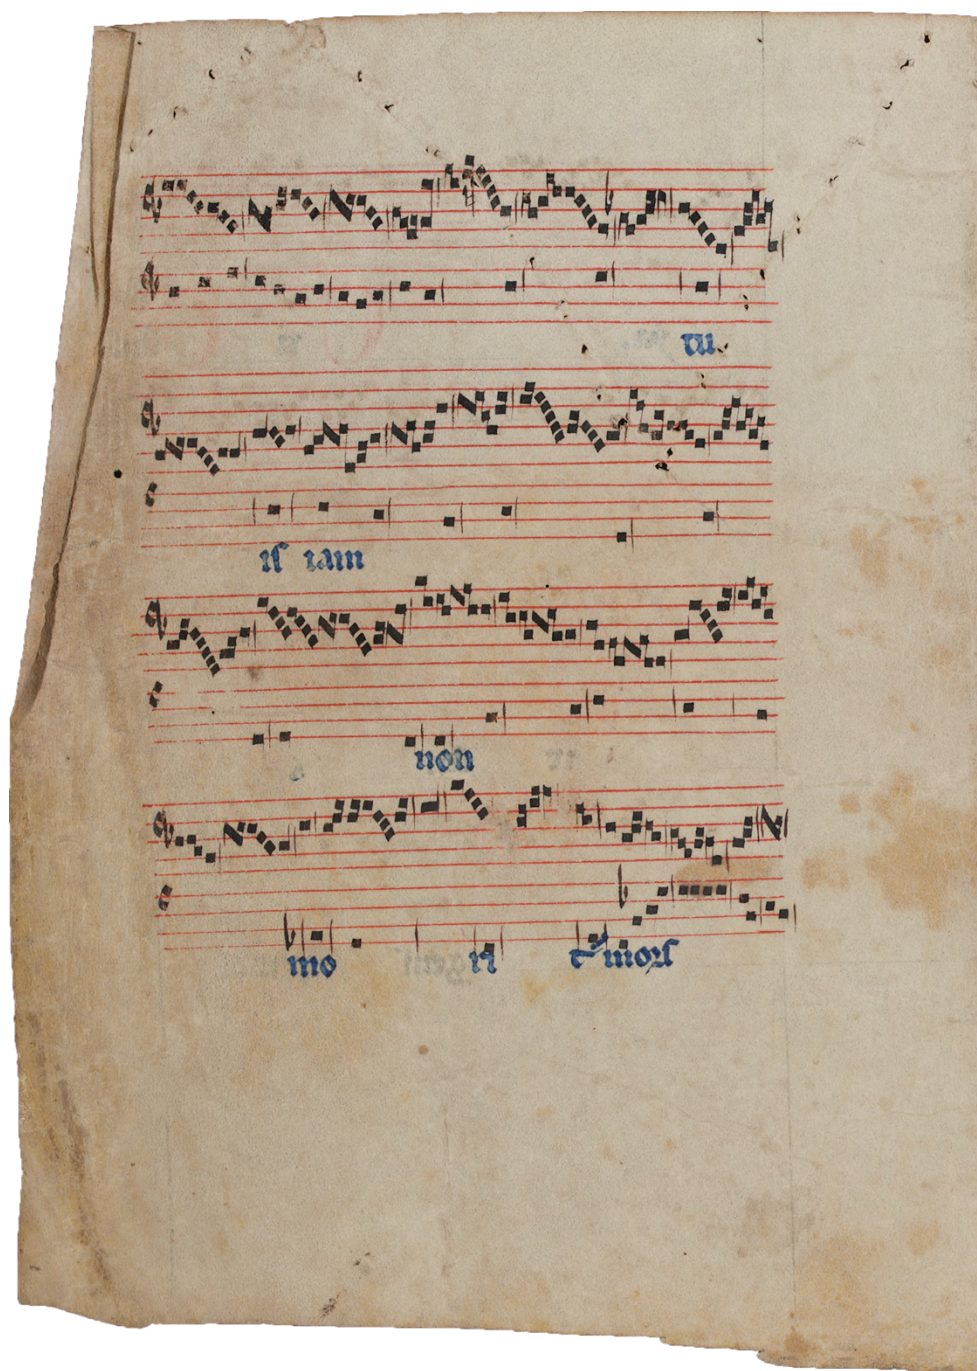 tu
is iam
non
mo ri t mors